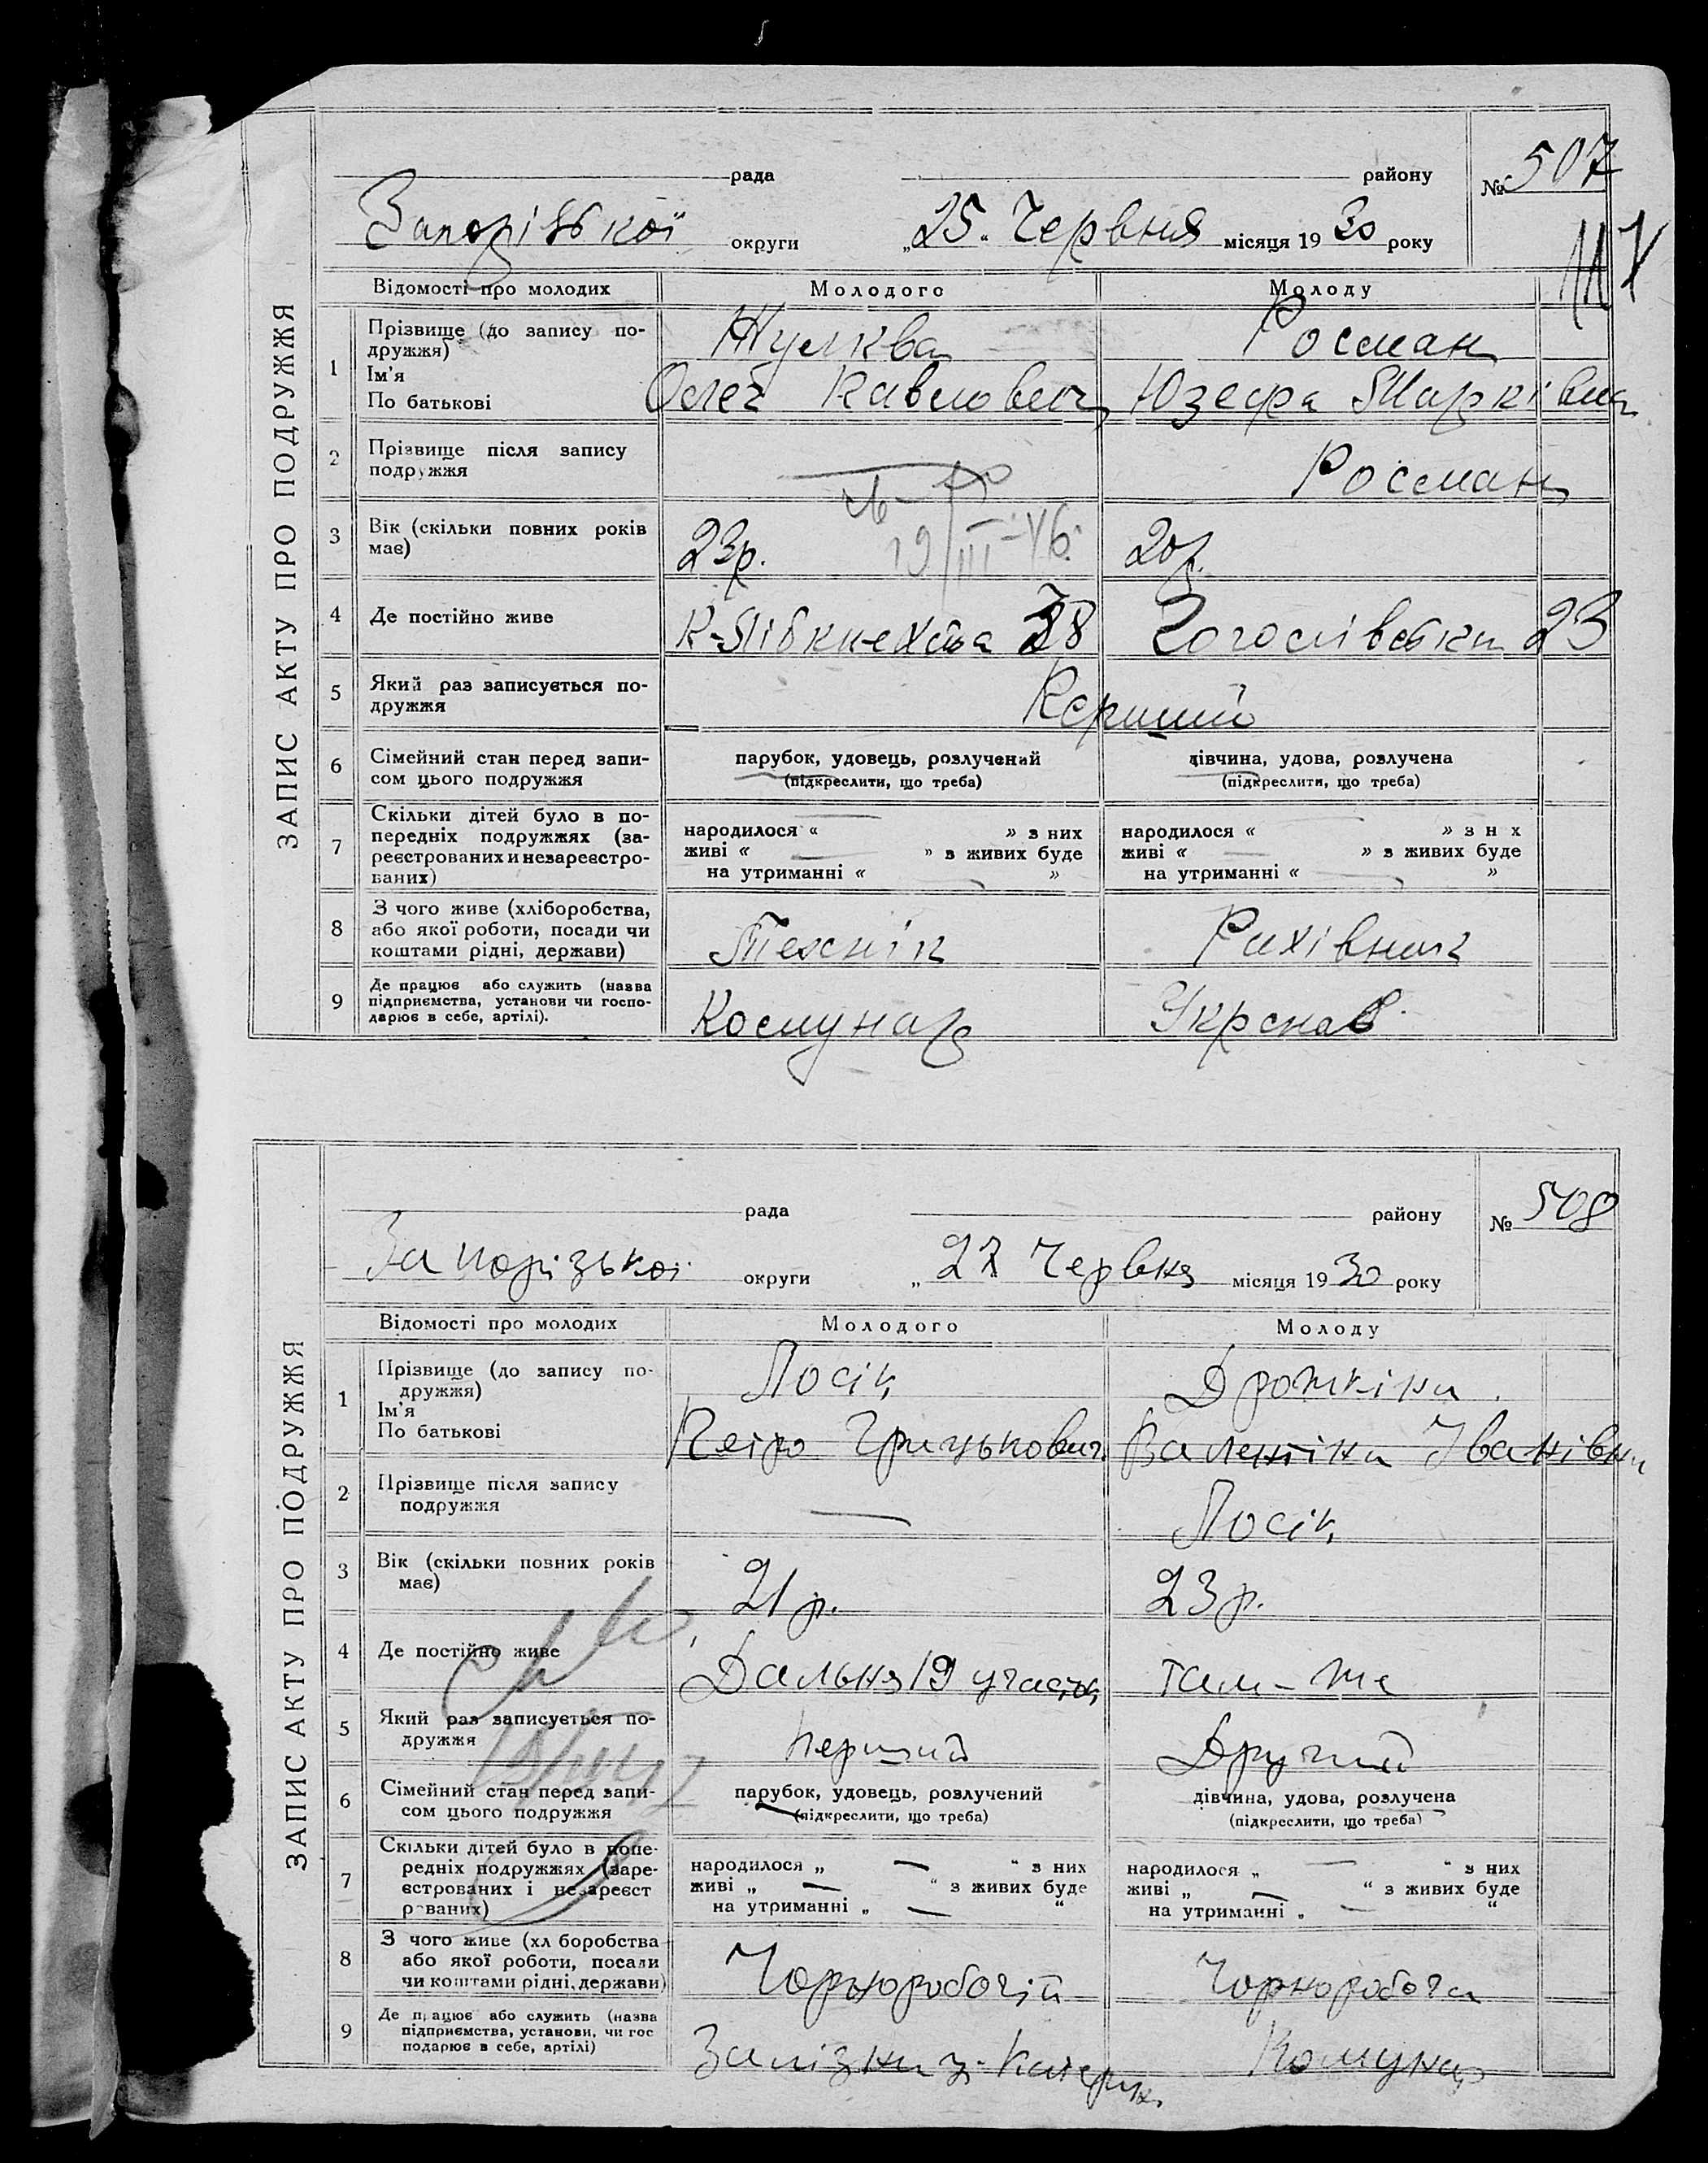 ЗАПИС АКТУ ПРО ПОДРУЖЖЯ
рада району № 507
Запорізької округи „25“ Червня місяця 1930 року
Відомості про молодих Молодого Молоду
1 Прізвище (до запису подружжя) Жулква Росман
Ім'я По батькові Олег Павлович Юзефа Марківна
2 Прізвище після запису подружжя — Росман
3 Вік (скільки повних років має) 23р. 20р.
19/III-46.
4 Де постійно живе К-Лібкнехта 38 23
5 Який раз записується подружжя Перший
6 Сімейний стан перед записом цього подружжя парубок, удовець, розлучений дівчина, удова, розлучена
(підкреслити, що треба) (підкреслити, що треба)
7 Скільки дітей було в попередніх подружжях (зареєстрованих и незареєстрованих)
народилося « — » з них народилося « — » з н х
живі « — » з живих буде живі « — » з живих буде
на утриманні « — » на утриманні « — »
8 З чого живе (хліборобства, або якої роботи, посади чи коштами рідні, держави) Технік Рахівник
9 Де працює або служить (назва підприємства, установи чи господарює в себе, артілі). Комунар
ЗАПИС АКТУ ПРО ПОДРУЖЖЯ
рада району № 508
Запорізької округи „27 Червня місяця 1930 року
Відомості про молодих Молодого Молоду
1 Прізвище (до запису подружжя) Лосік Дрожкіна
Ім'я По батькові Петро Грицькович Валентіна Іванівна
2 Прізвище після запису подружжя — Лосік
3 Вік (скільки повних років має) 21р. 23р.
4 Де постійно живе Дальня 19 участок там-же
5 Який раз записується подружжя перший Другий
6 Сімейний стан перед записом цього подружжя парубок, удовець, розлучений дівчина, удова, розлучена
(підкреслити, що треба) (підкреслити, що треба)
7 Скільки дітей було в попередніх подружжях (зареєстрованих і незареєст рованих)
народилося „ — “ з них народилося „ — “ з них
живі „ — “ з живих буде живі „ — “ з живих буде
на утриманні „ — “ на утриманні „ — “
8 З чого живе (хл боробства або якої роботи, посади чи коштами рідні, держави) Чорноробочій Чорноробоча
9 Де працює або служить (назва підприємства, установи, чи гос подарює в себе, артілі) Залізниця Катерин. Комунар